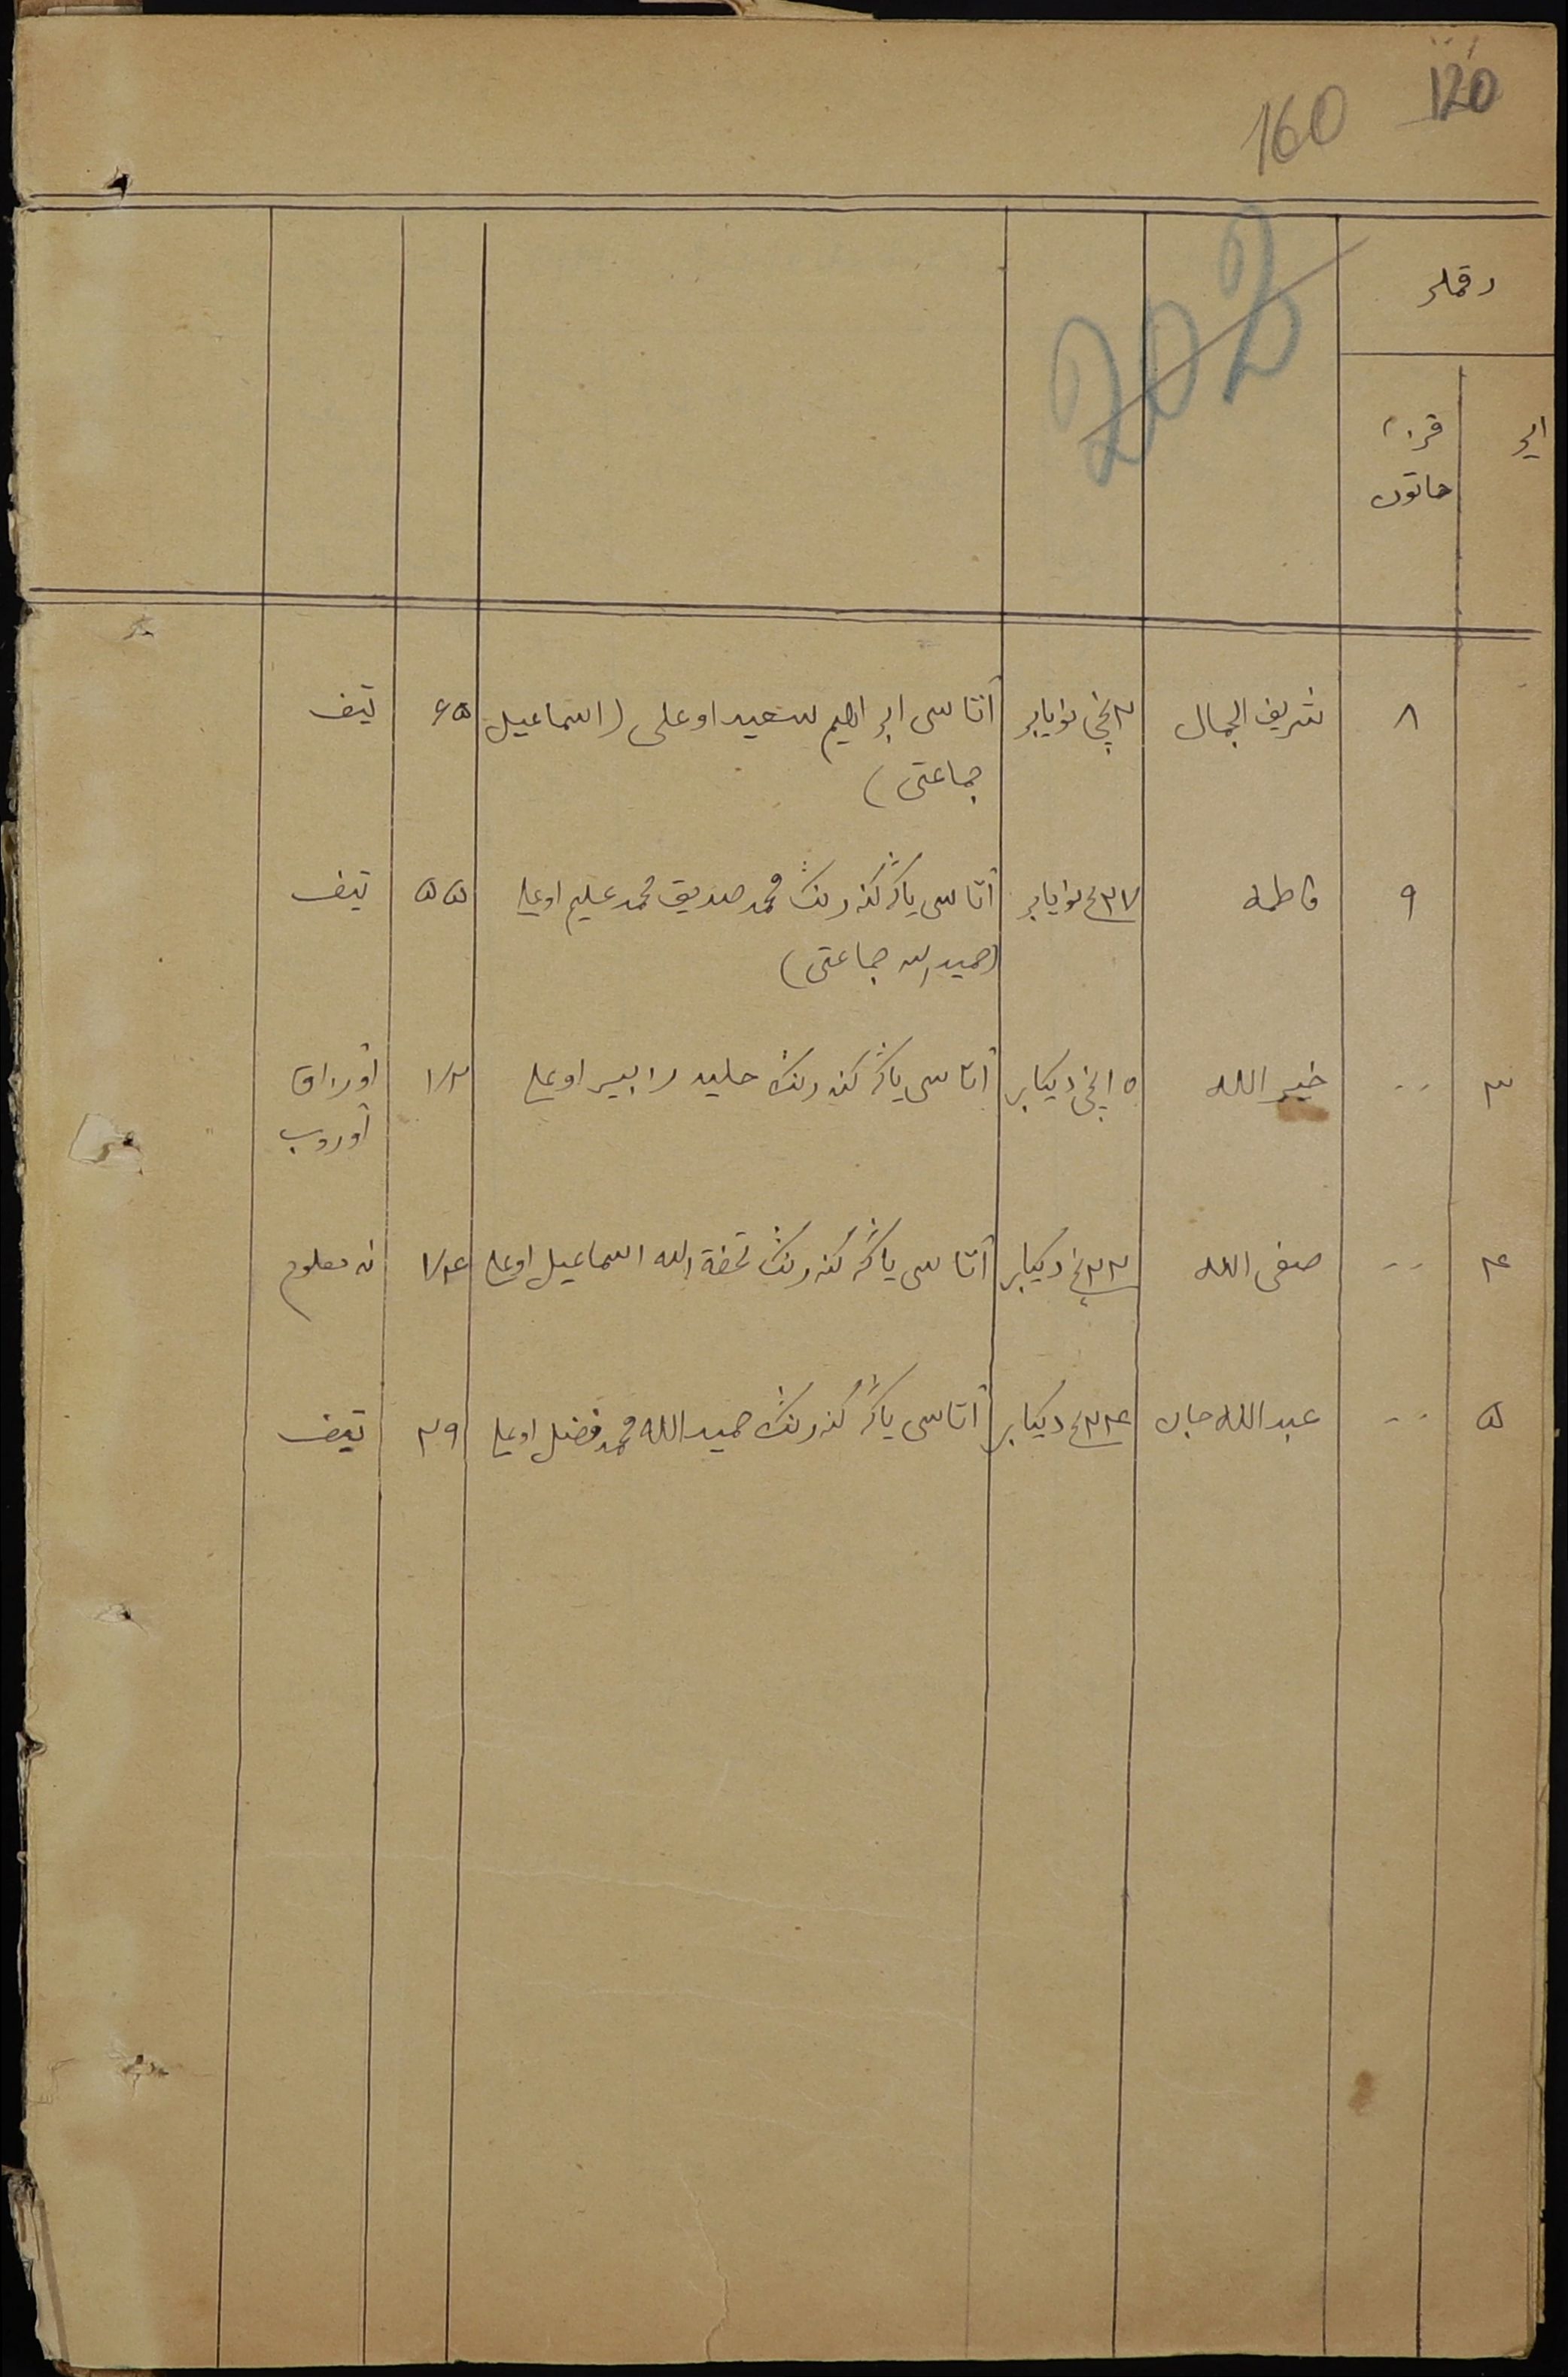 120
160
202
رقملر
ایر
قز،
خاتون
٨ شریف الجمال ٣نچی نوایابر آتاسی ابراهیم سعید اوغلی (اسماعیل ۶۵ تیف
جماعتی)
٩ فاطمه ٢٧نچی نوایابر آتاسی یاڭرݣندرنڭ محمد صدیق محمد علیم اوغلی ۵۵ تیف
(حمید الله جماعتی)
٣ -- خیر الله ۵نچی دیکابر آتاسی یاڭرݣندرنڭ اوغلی ١/٢ آوراق
آوروب
۴ -- صفی الله ٢٣نچی دیکابر آتاسی یاڭرݣندرنڭ تحفة الله اسماعیل اوغلی ١/۴ نه معلوم
۵ -- عبد الله جان ٢۴نچی دیکابر آتاسی یاڭرݣندرنڭ حمید الله محمد فضل اوغلی ٢٩ تیف